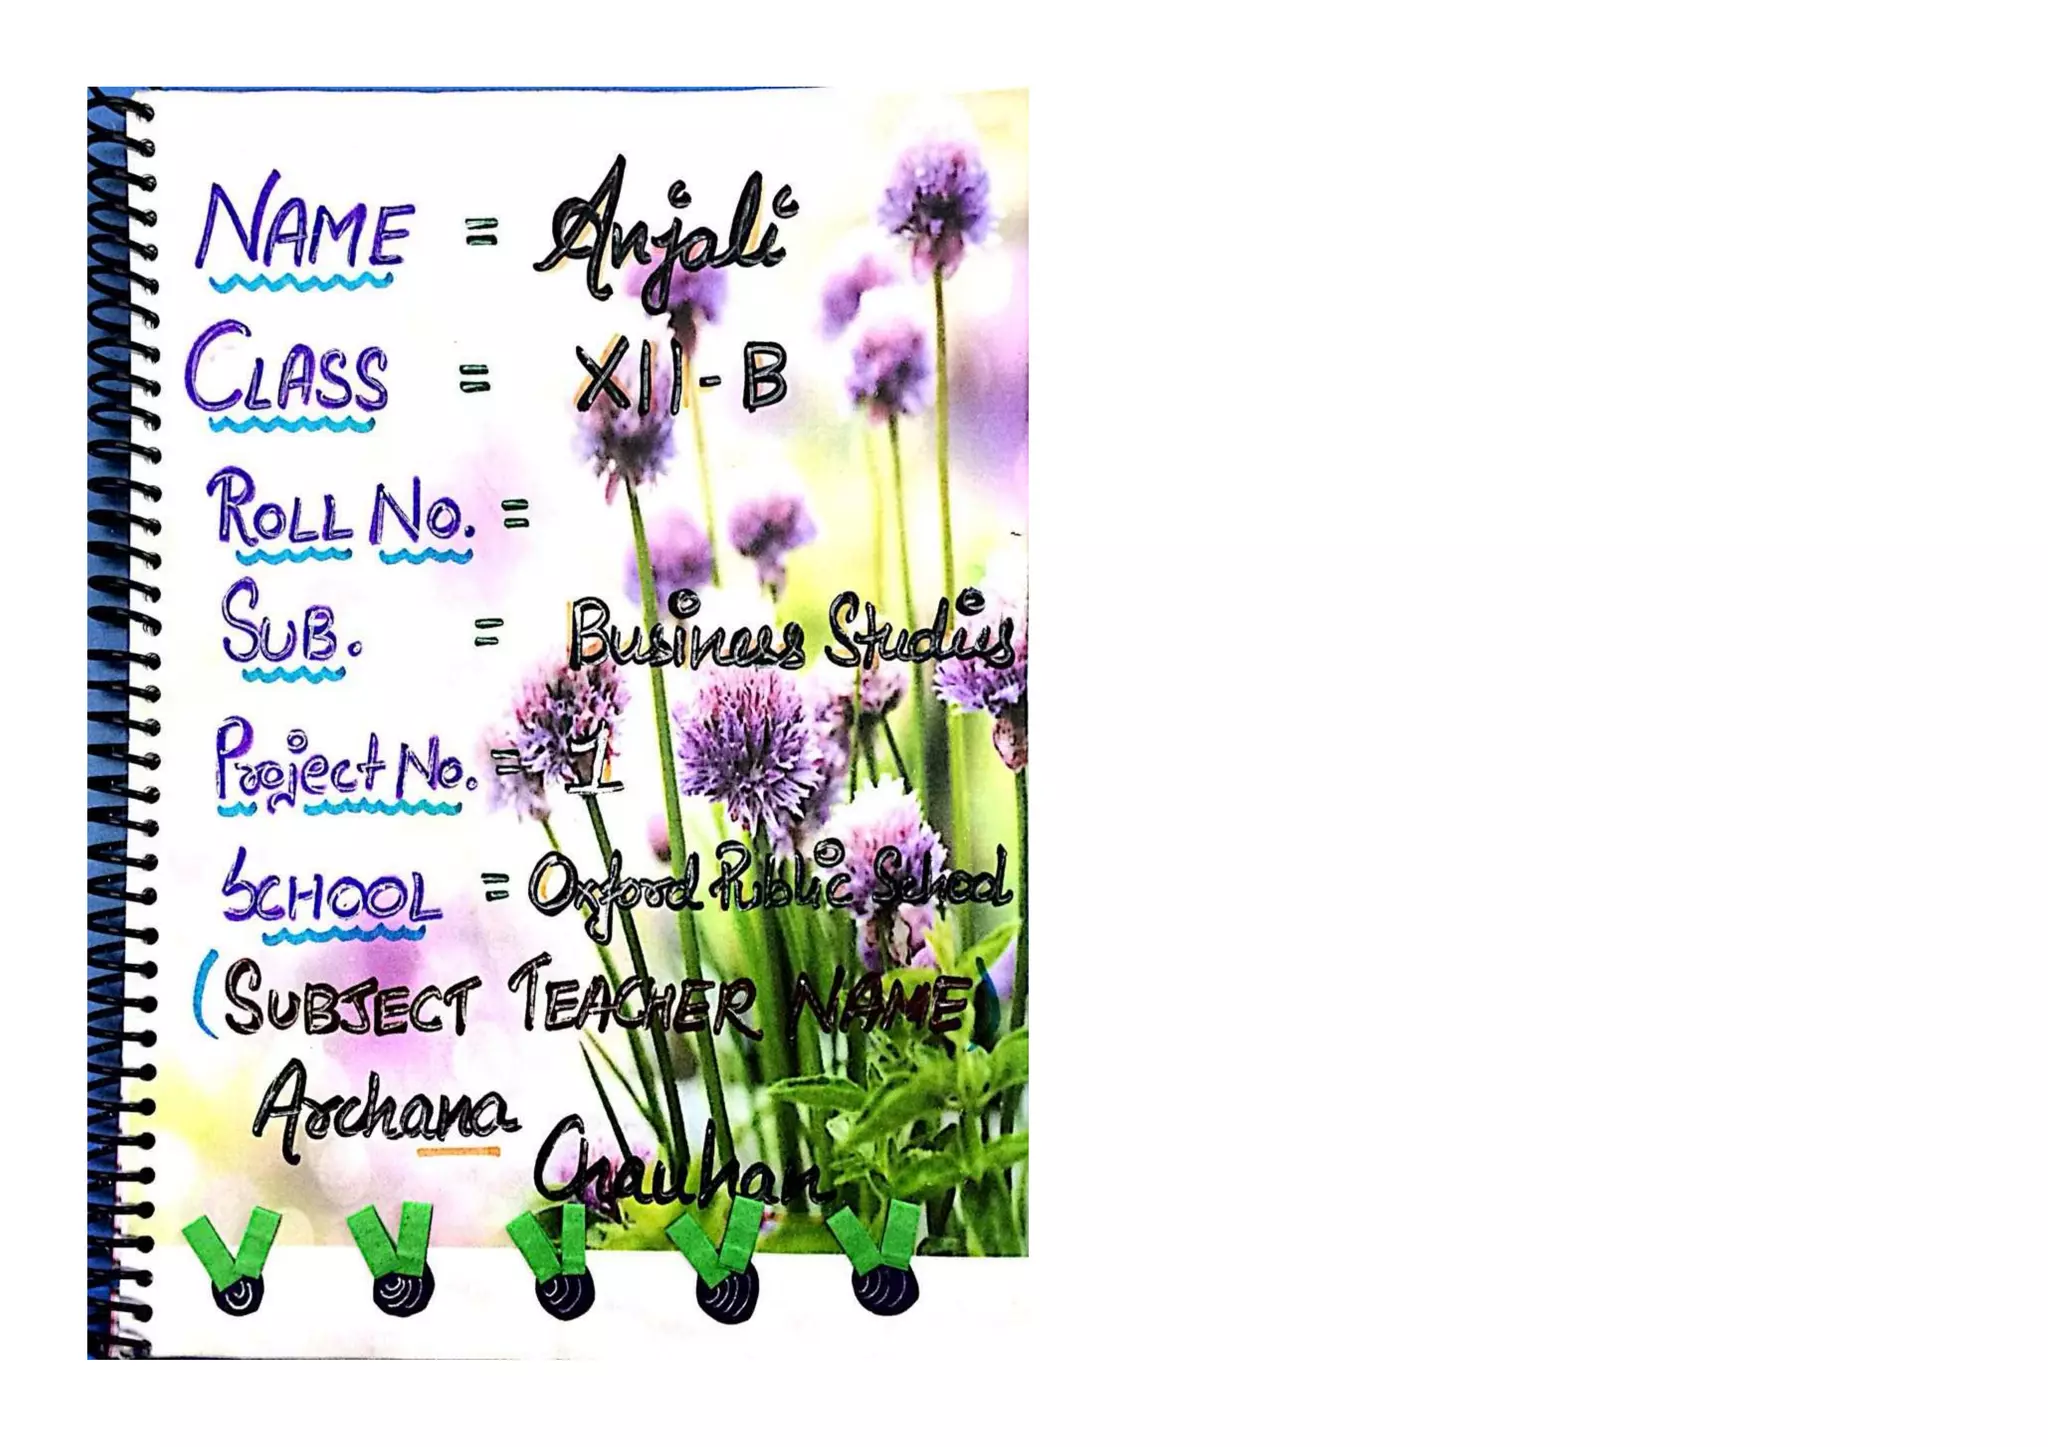 NAME = Anjali
CLASS = XII-B
ROLL NO. =
SUB. = Business Studies
Project No. = 1
SCHOOL = Oxford Public School
(SUBJECT TEACHER NAME)
Archana
Chauhan